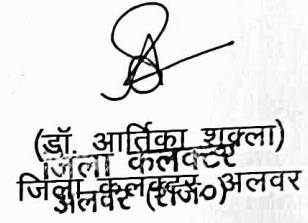 (डॉ. आर्तिका शुक्ला)
जिला कलक्टर
जिला कलक्टर, अलवर
अलवर (राज०)